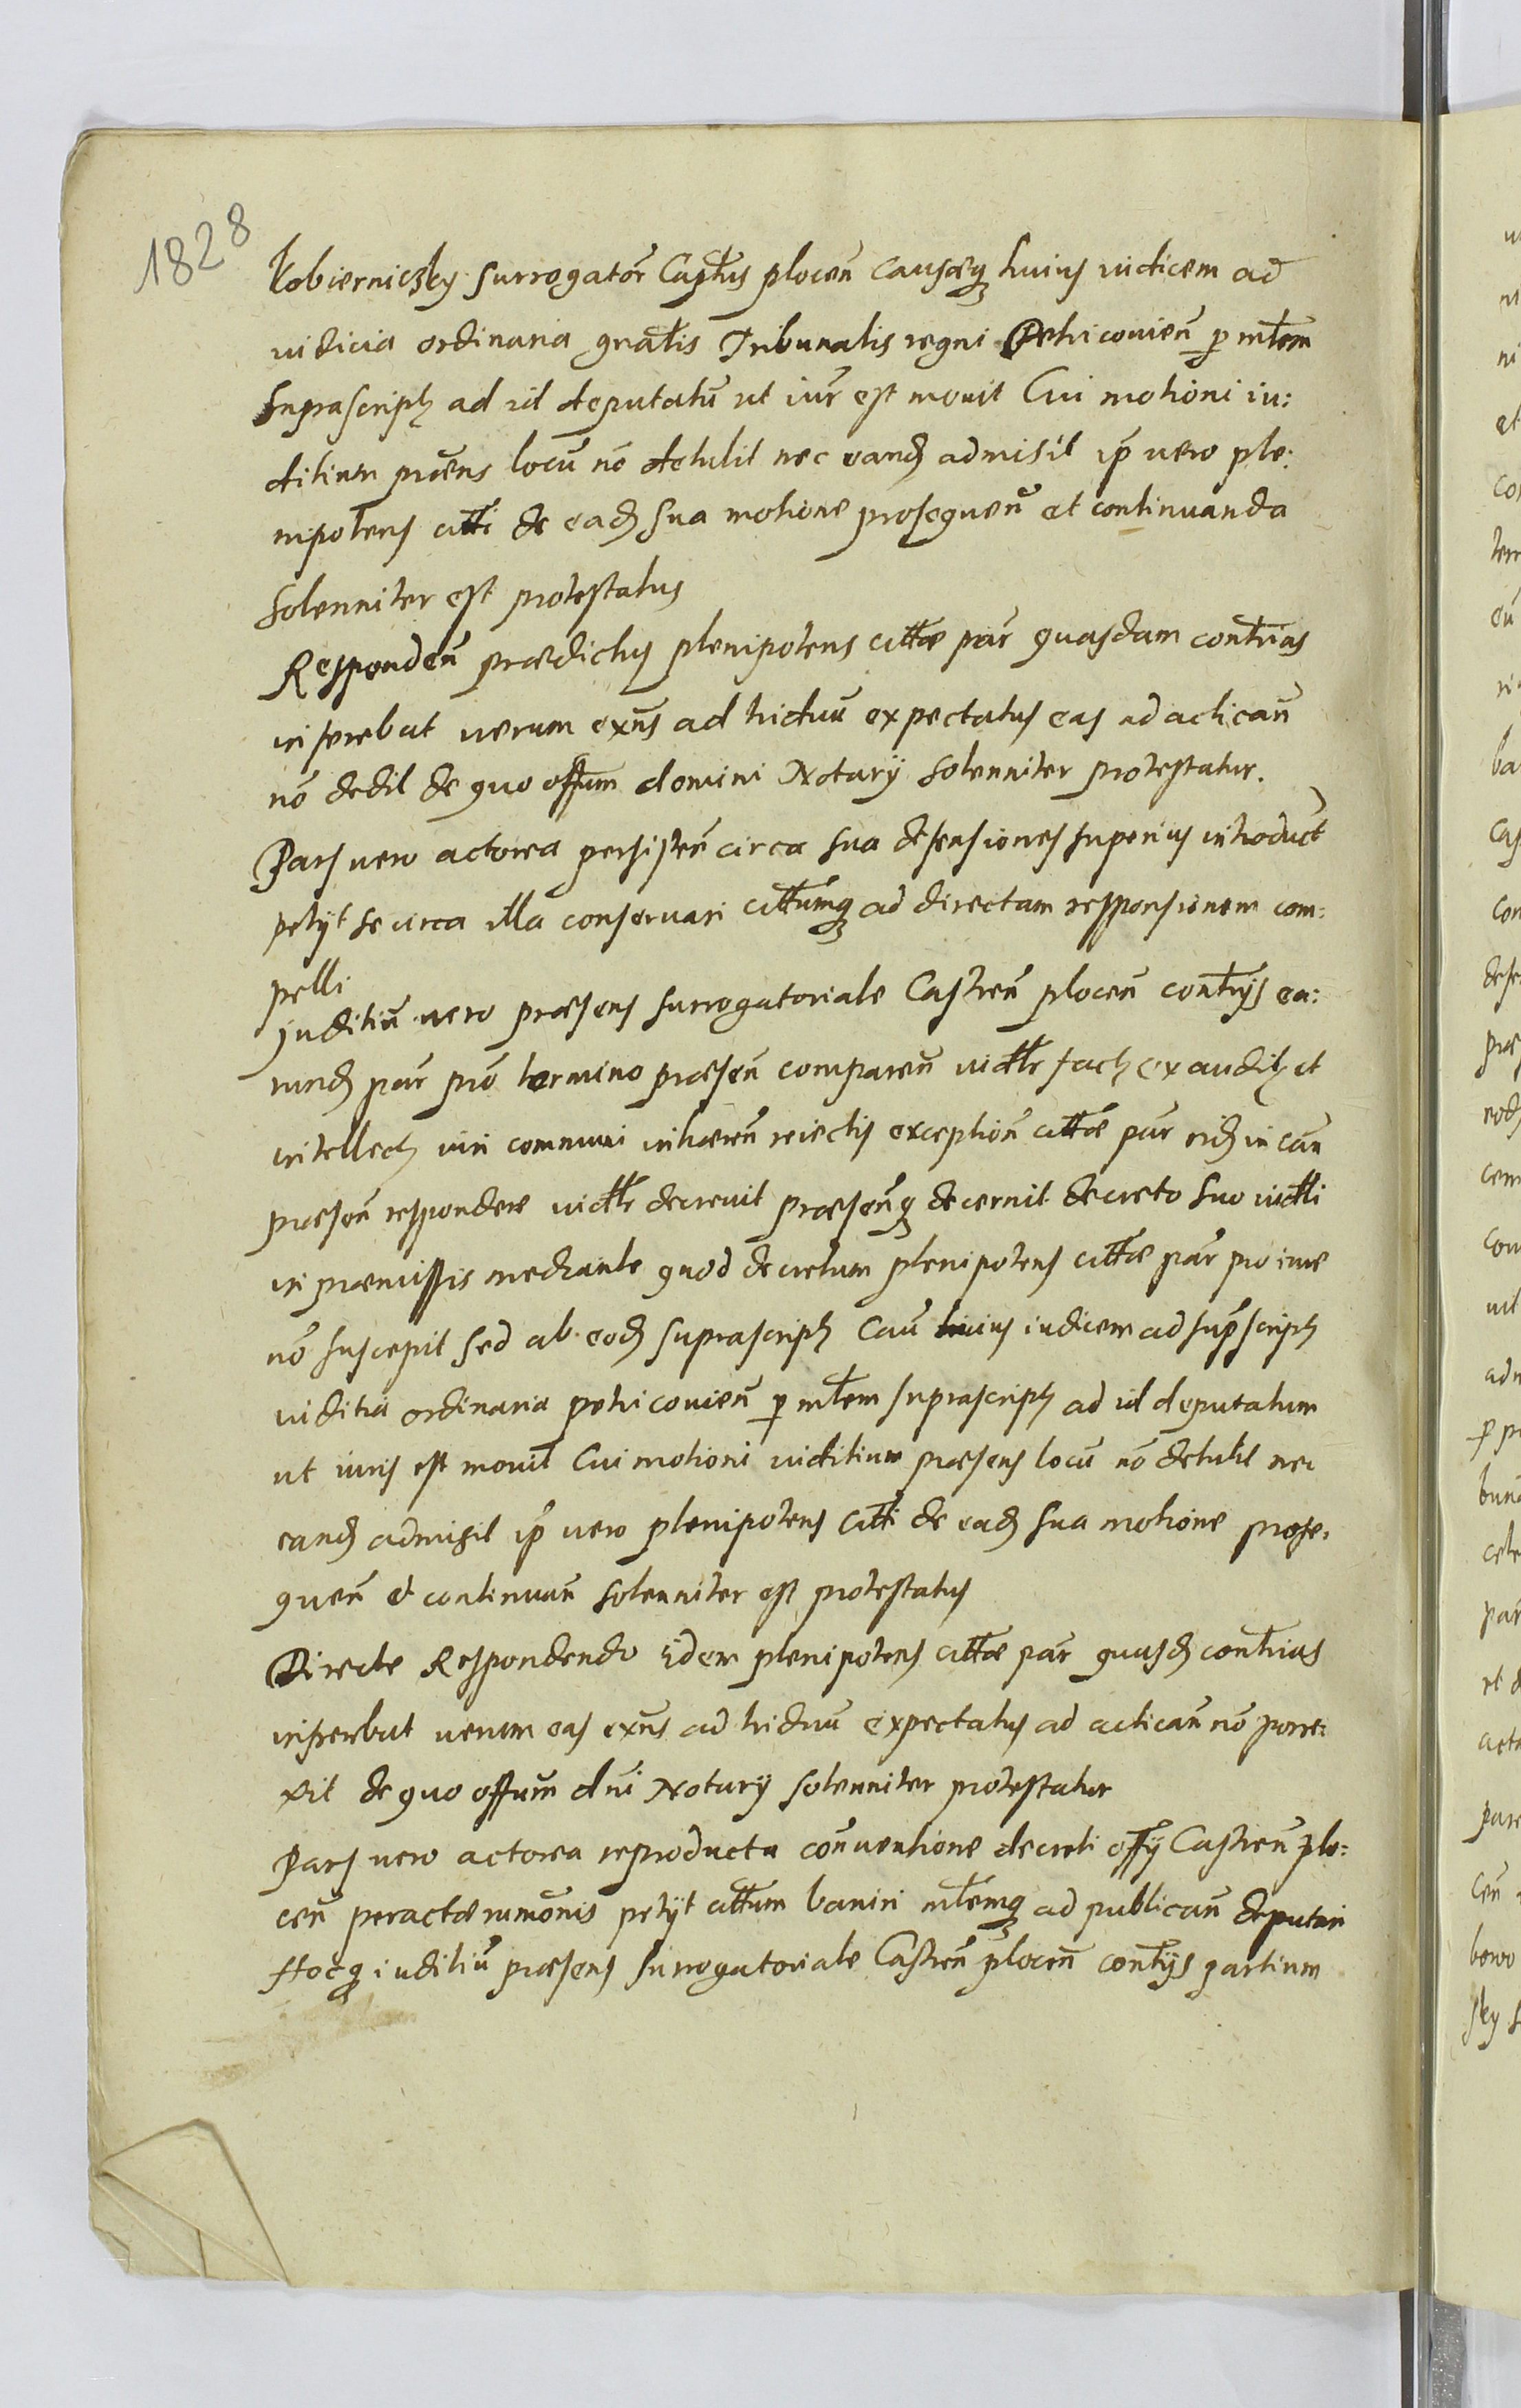 1828
Kobierniczky surrogator Captus plocen causaeq huius iudicem ad
iudicia ordinaria gnalis Tribunalis regni Petricouien p mtem
suprascript ad id deputatu ut iur est mouit Cui motioni iu:
ditium prens locu no detulit nec eand admisit ip vero ple:
nipotens citti de ead sua motione prosequen et continuanda
solenniter est protestatus
Responden praedictus plenipotens cittae par quasdam contrias
inferebat verum exns ad triduu expectatus eas ad actican
no dedit de quo offum domini Notary solenniter protestatur.
Pars vero actorea persisten circa sua defensiones superius introduct
petijt se circa illa conseruari cittumq ad directam responsionem com:
pelli
Juditiu vero praesens surrogatoriale Castren plocen contrijs ea:
rund par pro termino praesen comparen iudtlr fact exaudit et
intellect iuri communi inhaeren reiectis exception cittae par eid in cau
praesen respondere iudtlr decreuit praesenq decernit decreto suo iudtli
in praemissis mediante quod decretum plenipotens cittae par pro iure
no suscepit sed ab eod suprascript cau huius iudicem ad supscript
iuditia ordinaria petricouien p mtem suprascript ad id deputatum
ut iuris est mouit Cui motioni iuditium praesens locu no detulit nec
eand admisit ip vero plenipotens citti de ead sua motione prose:
quen et continuan solenniter est protestatus
Directe Respondendo Idem plenipotens cittae par quasd contrias
inferebat verum eas exns ad triduu expectatus ad actican no porre:
xit de quo offum dni Notary solenniter protestatur
Pars vero actorea reproducta conuentione decreti offy Castren plo:
cen peractae rumonis petijt cittum baniri mtemq ad publican deputari
Hocq iuditiu praesens surrogatoriale Castren plocen contijs partium